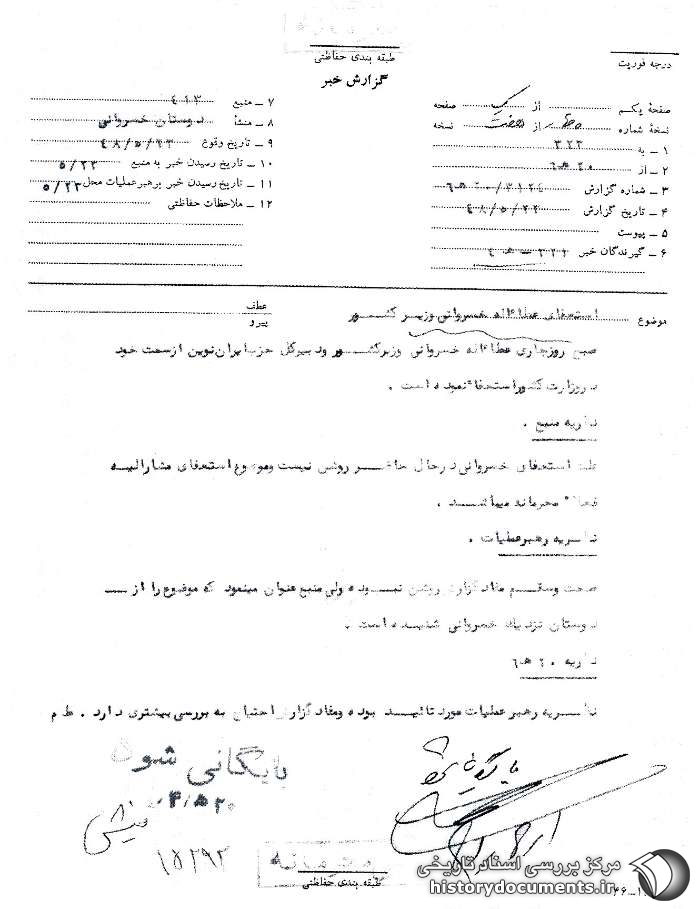 طبقه بندی حفاظتی
گزارش خبر
درجه فوریت
صفحهٔ یکم از یک صفحه
نسخهٔ شماره از نسخه
۱ ـ به ۳۲۲
۲ ـ از ۲۰ هـ ۶
۳ ـ شماره گزارش ۳۱۲۴/۲۰ هـ ۶
۴ ـ تاریخ گزارش ۴۸/۵/۲۲
۵ ـ پیوست
۶ ـ گیرندگان خبر
۷ ـ منبع ۴۱۳
۸ ـ منشأ دوستان خسروانی
۹ ـ تاریخ وقوع ۴۸/۵/۲۳
۱۰ ـ تاریخ رسیدن خبر به منبع ۵/۲۳
۱۱ ـ تاریخ رسیدن خبر برهبر عملیات محل ۵/۲۳
۱۲ ـ ملاحظات حفاظتی
موضوع استعفای عطاءاله خسروانی وزیر کشور
عطف
پیرو
صبح روزجاری عطاءاله خسروانی وزیرکشور ودبیرکل حزب ایران نوین ازسمت خود
دروزارت کشور استعفا نموده است .
نظریه منبع .
علت استعفای خسروانی درحال حاضر روشن نیست وموضوع استعفای مشارالیه
فعلا" محرمانه میباشد .
نظریه رهبرعملیات .
صحت وسقم مفاد گزارش روشن نبوده ولی منبع عنوان مینمود که موضوع را از
دوستان نزدیک خسروانی شنیده است .
نظریه ۲۰ هـ ۶
نظریه رهبر عملیات مورد تائید بوده ومفاد گزارش احتیاج به بررسی بیشتری دارد . ط م
بایگانی شود
بایگانی شود
۱۵۲۹۲
محرمانه
طبقه بندی حفاظتی
مرکز بررسی اسناد تاریخی
historydocuments.ir